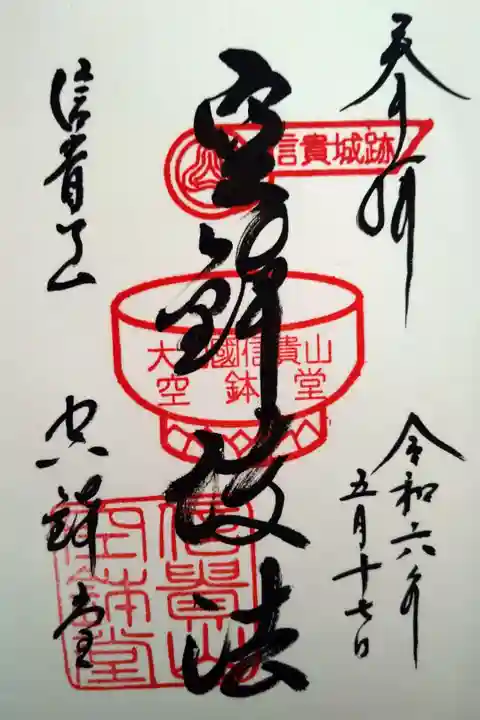 奉拝
令和六年
五月十七日
空鉢護法
信貴城跡
大和國信貴山
空鉢堂
信貴山
空鉢堂
信貴山
空鉢堂